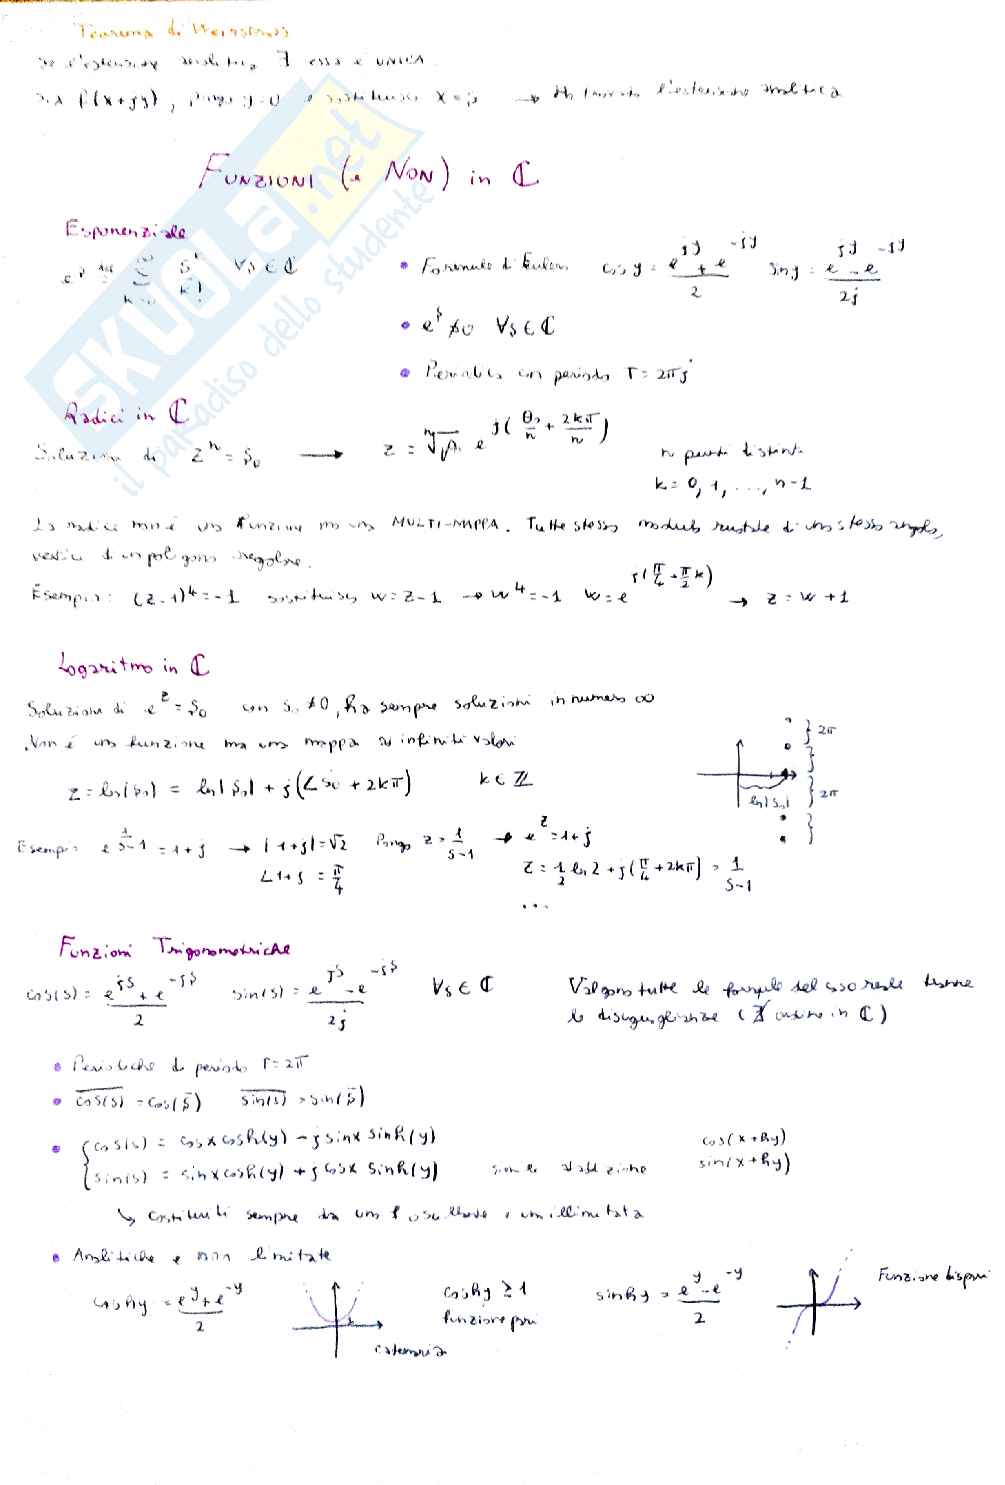 Teorema di Weierstrass
Se l'estensione analitica ∃ essa è UNICA.
Sia f(x+jy), pongo y=0 e sostituisco x=s → Ho trovato l'estensione analitica
FUNZIONI (e NON) in ℂ
Esponenziale
e^s def= Σ_{k=0}^{∞} s^k/k! ∀s∈ℂ
• Formule di Eulero cos y = (e^{jy}+e^{-jy})/2 sin y = (e^{jy}-e^{-jy})/2j
• e^s ≠ 0 ∀s∈ℂ
• Periodica con periodo T=2πj
Radici in ℂ
Soluzioni di z^n = s₀ → z = ⁿ√ρ₀ e^{j(θ₀/n + 2kπ/n)}
n punti distinti
k=0,1,...,n-1
La radice non è una funzione ma una MULTI-MAPPA. Tutte stesso modulo ruotate di uno stesso angolo,
vertici di un poligono regolare.
Esempio: (z-1)^4=-1 sostituisco w=z-1 → w^4=-1 w=e^{j(π/4+π/2 k)} → z=w+1
Logaritmo in ℂ
Soluzione di e^z = s₀ con s₀≠0, ha sempre soluzioni in numero ∞
Non è una funzione ma una mappa a infiniti valori
z = ln(s₀) = ln|s₀| + j(∠s₀ + 2kπ) k∈ℤ
2π
2π
ln|s₀|
Esempio: e^{1/(s-1)} = 1+j → |1+j|=√2 Pongo z=1/(s-1) → e^z=1+j
∠1+j = π/4 z=1/2 ln2+j(π/4+2kπ) = 1/(s-1)
...
Funzioni Trigonometriche
cos(s) = (e^{js}+e^{-js})/2 sin(s) = (e^{js}-e^{-js})/2j ∀s∈ℂ Valgono tutte le formule del caso reale tranne
le disuguaglianze (∄ ordine in ℂ)
• Periodiche di periodo T=2π
• \overline{cos(s)} = cos(s̄) \overline{sin(s)} = sin(s̄)
• { cos(s) = cosx cosh(y) - j sinx sinh(y) cos(x+hy)
sin(s) = sinx cosh(y) + j cosx sinh(y) sin(x+hy)
↳ costituiti sempre da una f oscillante e una illimitata
• Analitiche e non limitate
cosh y = (e^y+e^{-y})/2
catenaria
cosh y ≥ 1
funzione pari
sinh y = (e^y-e^{-y})/2
Funzione dispari
SKUOLA.net
il paradiso dello studente